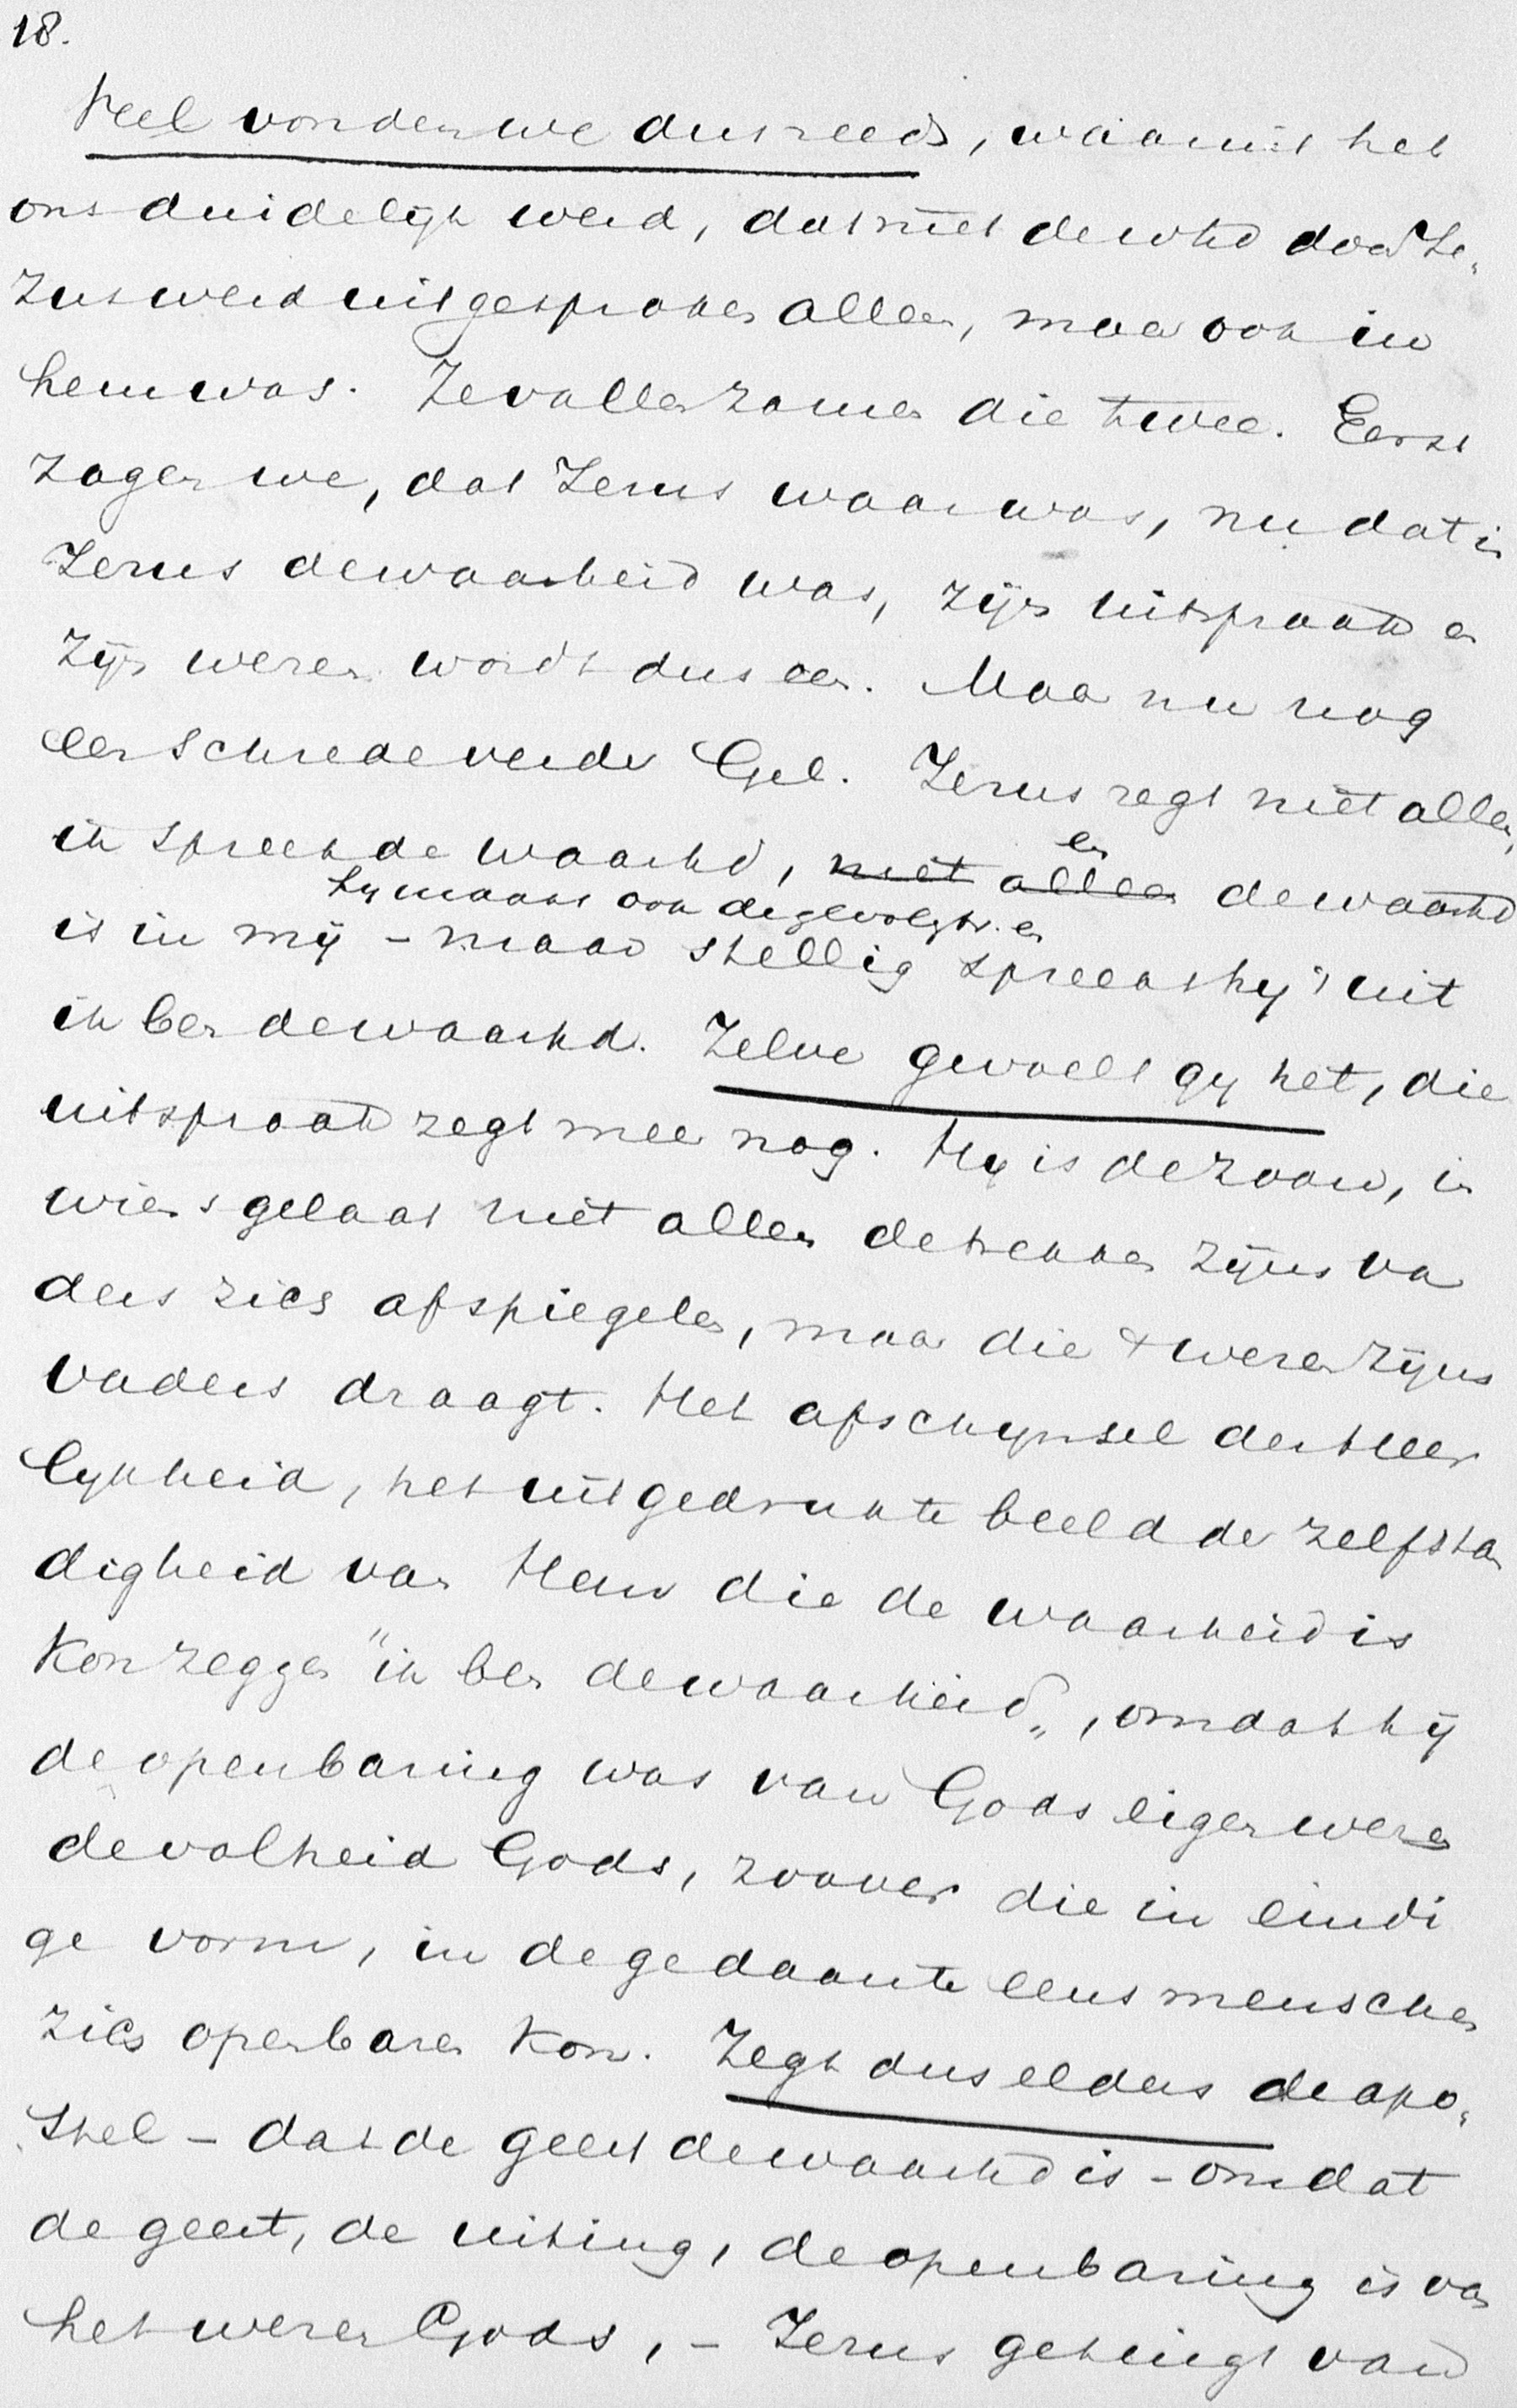 18.
Veel vonden we dus reeds, waaruit het
ons duidelijk werd, dat niet de whd door Je„
zus werd uitgesproken alleen, maar ook in
hem was. Ze vallen zamen die twee. Eerst
zagen we, dat Jezus waar was, nu dat in
Jezus de waarheid was, zijn uitspraak en
zijn wezen wordt dus een. Maar nu nog
een schrede verder Gel. Jezus zegt niet alleen,
ik spreek de waarhd, niet alleen en de waarhd
hy maakt ook de gevolgtr. en
is in mij – maar stellig spreekt hy 't uit
ik ben de waarhd. Zelve gevoelt gy het, die
uitspraak zegt meer nog. Hy is de zoon, in
wiens gelaat niet alleen de trekken zijns va
ders zich afspiegelen, maar die 't wezen zijns
vaders draagt. Het afschynsel der heer
lykheid, het uitgedrukte beeld der zelfstan
digheid van Hem die de waarheid is
kon zeggen "ik ben de waarheid„, omdat hij
de openbaring was van Gods eigen wezen
de volheid Gods, zoover die in eindi
ge vorm, in de gedaante eens menschen
zich openbaren kon. Zegt dus elders de apo„
stel – dat de geest de waarhd is – omdat
de geest, de uiting, de openbaring is van
het wezen Gods, – Jezus getuigt van